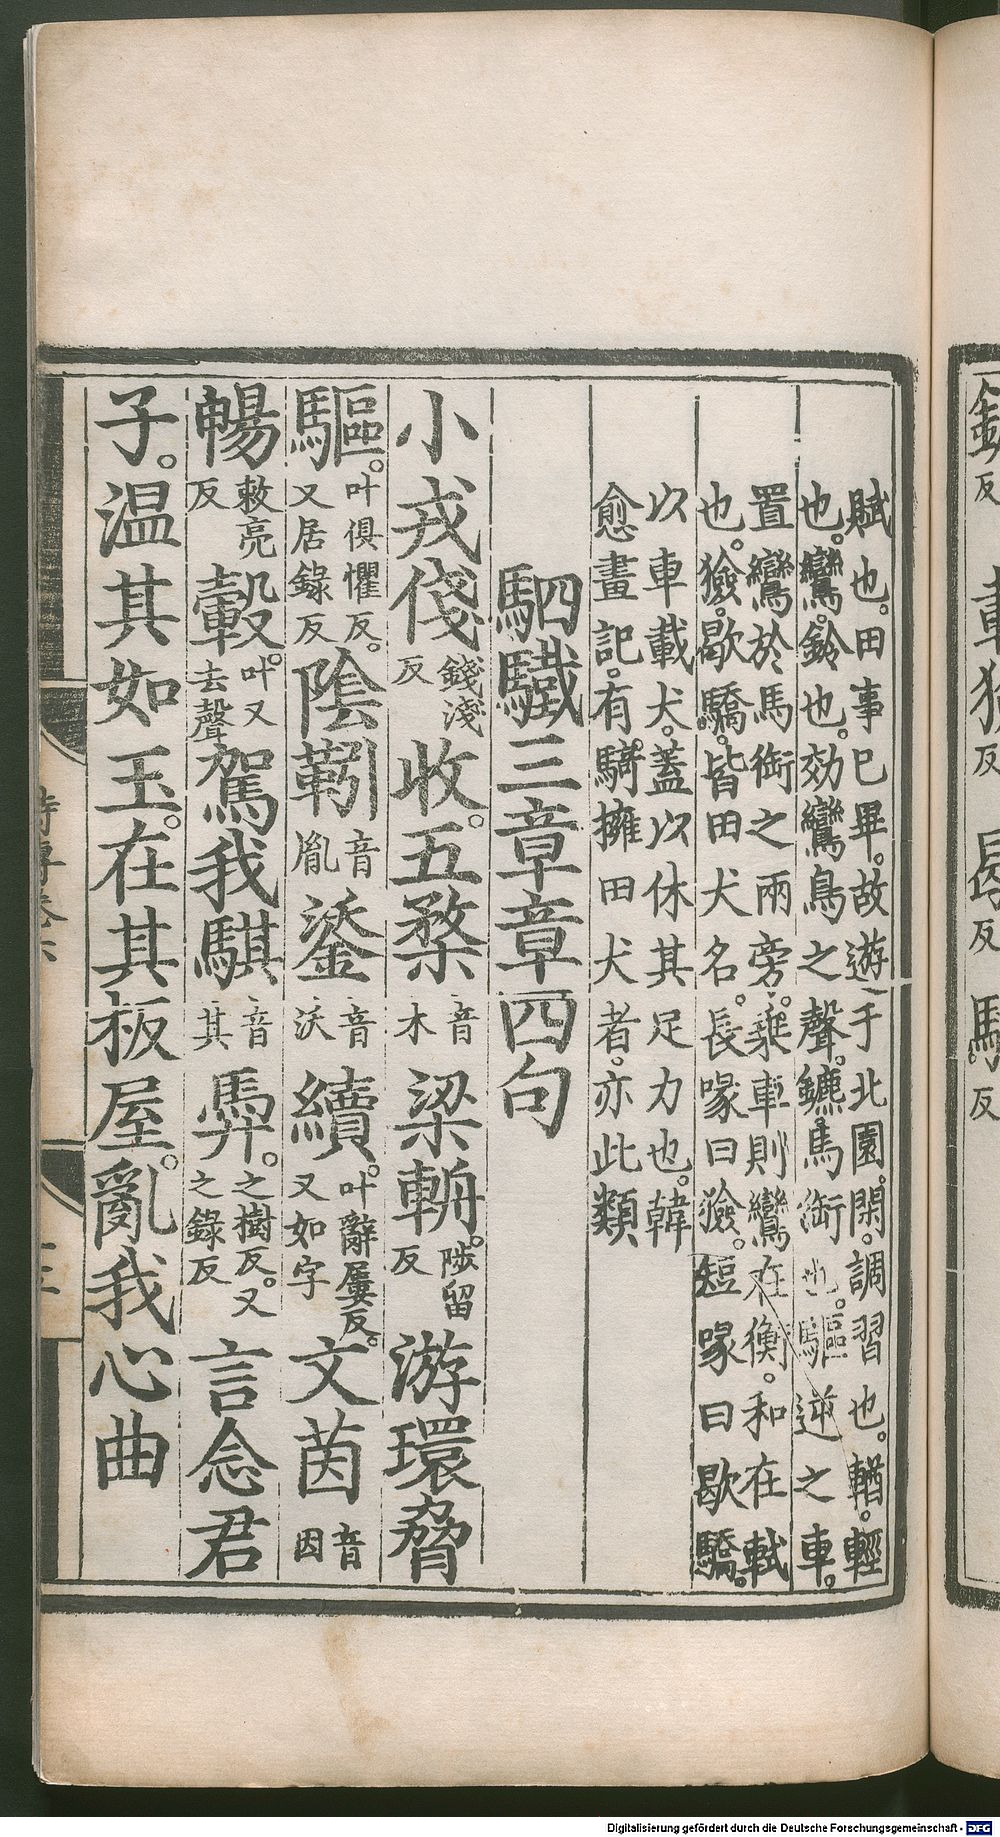 賦也。田事已畢。故遊于北園。閑。調習也。輶。輕
也。鸞。鈴也。效鸞鳥之聲。鑣。馬銜也。驅逆之車。
置鸞於馬銜之兩旁。乘車則鸞在衡。和在軾
也。獫。歇驕。皆田犬名。長喙曰獫。短喙曰歇驕。
以車載犬。蓋以休其足力也。韓
愈畫記。有騎擁田犬者。亦此類
駟驖三章章四句
小戎俴錢淺反收。五楘音木梁輈。陟留反游環脅
驅。叶俱懼反。又居錄反陰靷音胤鋈音沃續。叶辭屢反。又如字文茵音因
暢敕亮反轂。叶又去聲駕我騏音其馵。之樹反。又之錄反言念君
子。温其如玉。在其板屋。亂我心曲
詩傳卷六
Digitalisierung gefördert durch die Deutsche Forschungsgemeinschaft - DFG